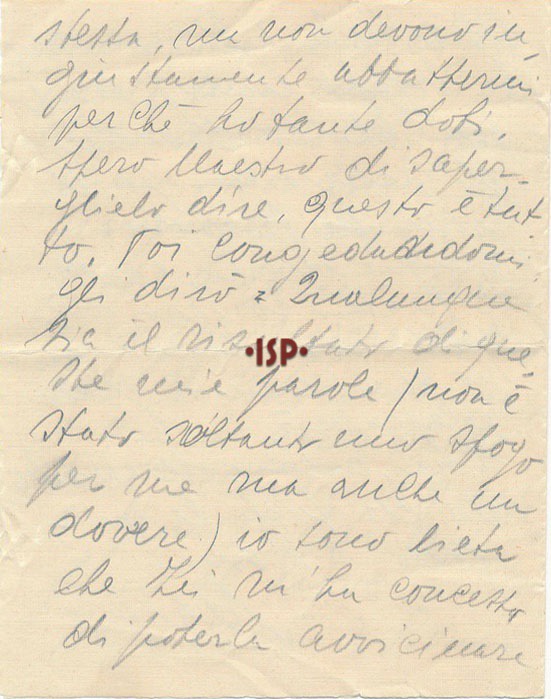 stessa, ma non devono in
giustamente abbattermi
perché ho tante doti,
spero Maestro di saper-
glielo dire, questo è tut
to. Poi congedandomi
gli dirò = Qualunque
sia il risultato di que
ste mie parole (non è
stato soltanto uno sfogo
per me ma anche un
dovere) io sono lieta
che Lei m'ha concesso
di poterla avvicinare
·ISP·